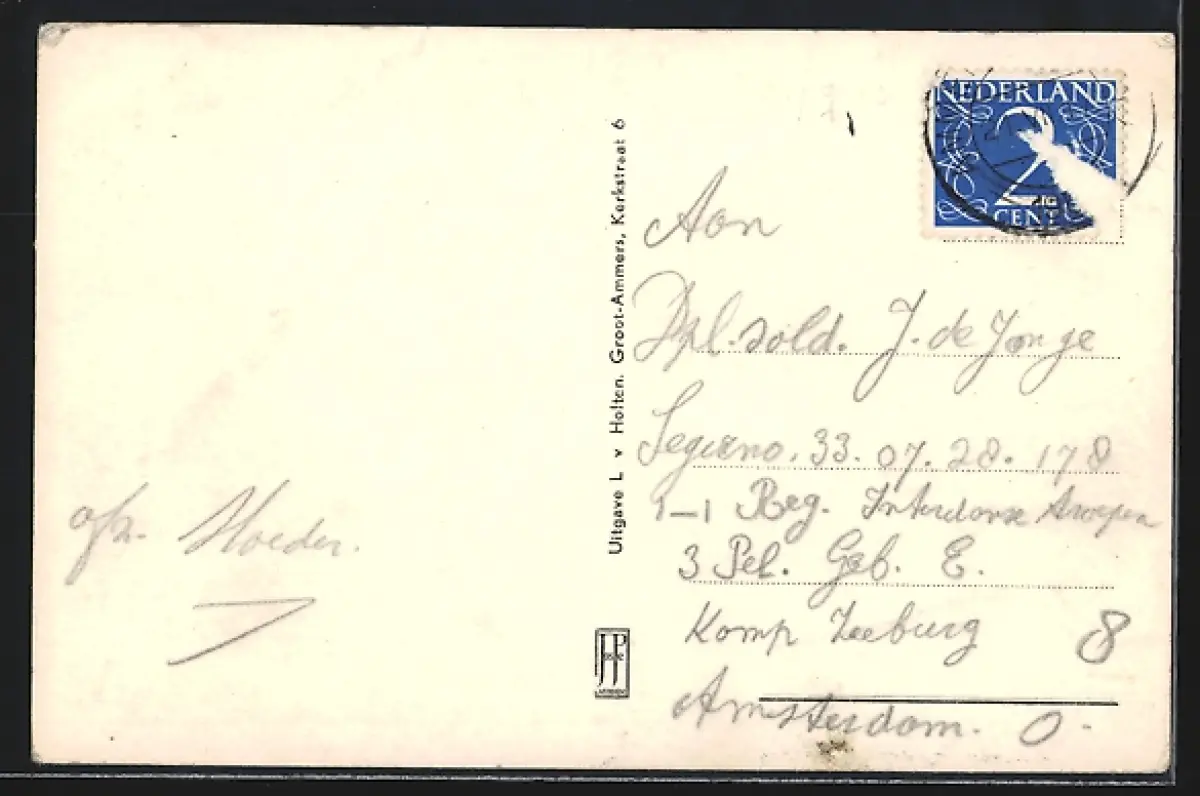 NEDERLAND
2
CENT
Aan
Dpl. sold. J. de Jonge
Legerno. 33. 07. 28. 178
1-1 Reg. Intendance Troepen
3 Pel. Geb. E.
Komp Zeeburg 8
Amsterdam. O.
afz. Moeder.
Uitgave L v Holten. Groot-Ammers, Kerkstraat 6
JP